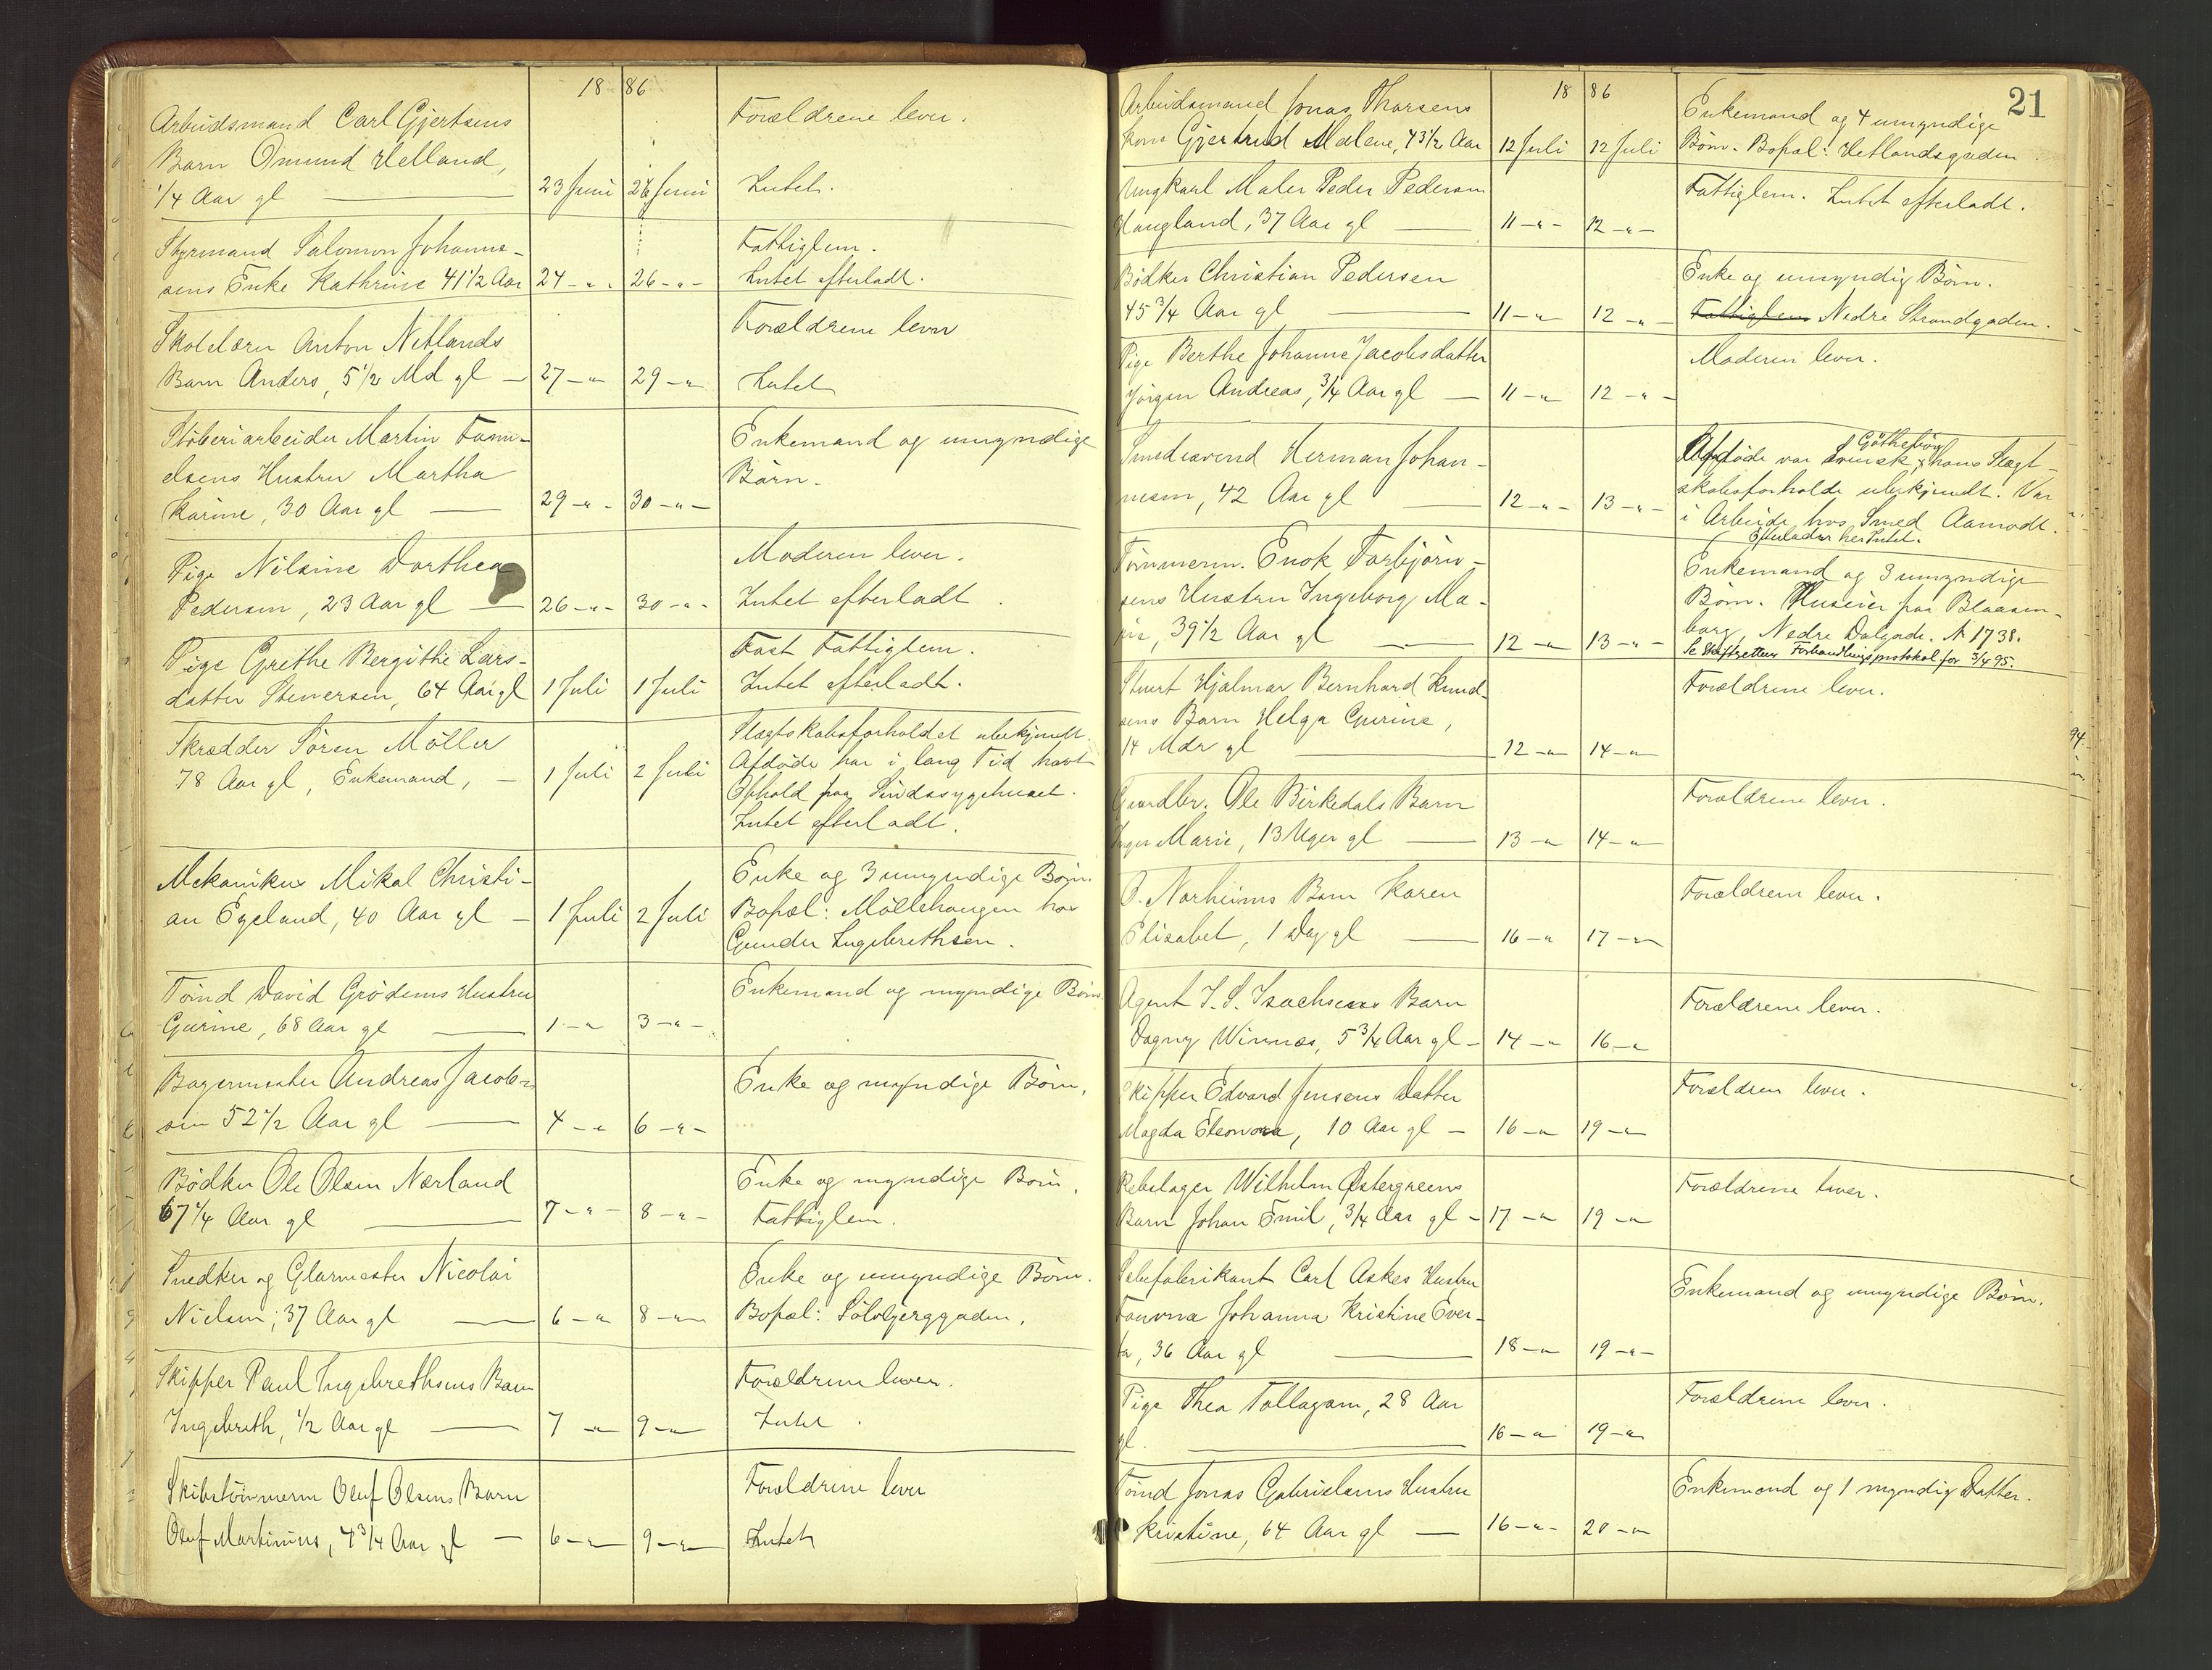 18 86
Arbeidsmand Carl Gjertsens
Barn Omund Helland,
1/4 Aar gl — 23 Juni 26 Juni
Forældrene lever.
Intet.
Styrmand Salomon Johanne-
sens Enke Kathrine 41 1/2 Aar 24 -"- 26 -"-
Fattiglem.
Intet efterladt.
Skolelærer Anton Netlands
Barn Anders, 5 1/2 Md gl — 27 -"- 29 -"-
Forældrene lever
Intet
Støberiarbeider Martin
elsens Hustru Martha
Karine, 30 Aar gl — 29 -"- 30 -"-
Enkemand og umyndige
Børn.
Pige Nilsine Dorthea
Pedersen, 23 Aar gl — 26 -"- 30 -"-
Moderen lever.
Intet efterladt.
Pige Grethe Bergithe Lars-
datter Stenersen, 64 Aar gl 1 Juli 1 Juli
Fast Fattiglem.
Intet efterladt.
Skrædder Sören Möller
78 Aar gl, Enkemand, — 1 Juli 2 Juli
Slægtskabsforholdet ubekjendt.
Afdøde har i lang Tid havt
Ophold paa Sindssygehuset.
Intet efterladt.
Mekaniker Mikal Christi-
an Egeland, 40 Aar gl — 1 Juli 2 Juli
Enke og 3 umyndige Børn.
Bopæl: Möllehaugen hos
Gunder Ingebrethsen.
Tømd David Grödems Hustru
Gurine, 68 Aar gl — 1 -"- 3 -"-
Enkemand og myndige Børn
Bagermester Andreas Jacob-
sen 52 1/2 Aar gl — 4 -"- 6 -"-
Enke og myndige Børn.
Bödker Ole Olsen Nærland
67 1/4 Aar gl — 7 -"- 8 -"-
Enke og myndige Børn.
Fattiglem.
Snedker og Glarmester Nicolai
Nielsen, 37 Aar gl — 6 -"- 8 -"-
Enke og umyndige Børn.
Bopæl: Sölvbjerggaden.
Skipper Paul Ingebrethsens Barn
Ingebreth, 1/2 Aar gl — 7 -"- 9 -"-
Forældrene lever.
Intet.
Skibstömmerm Oluf Olsens Barn
Oluf Martinius, 4 3/4 Aar gl — 6 -"- 9 -"-
Forældrene lever
Intet
21
18 86
Arbeidsmand Jonas Thorsens
kone Gjertrud Malene, 43 1/2 Aar 12 Juli 12 Juli
Enkemand og 4 umyndige
Børn. Bopæl: Hetlandsgaden.
Ungkarl Maler Peder Pedersen
Haugland, 37 Aar gl — 11 -"- 12 -"-
Fattiglem. Intet efterladt.
Bödker Christian Pedersen
45 3/4 Aar gl — 11 -"- 12 -"-
Enke og umyndig Børn.
Fattiglem Nedre Strandgaden.
Pige Berthe Johanne Jacobsdatter
Jörgen Andreas, 3/4 Aar gl — 11 -"- 12 -"-
Moderen lever.
Smedsvend Herman Johan-
nesen, 42 Aar gl — 12 -"- 13 -"-
Götheborg
Afdøde var Svensk, hans Slægt-
skabsforholde ubekjendt. Var
i Arbeide hos Smed Aamodt.
Efterlader her Intet.
Tömmerm. Enok Torbjörn-
sens Hustru Ingeborg Ma-
rie, 39 1/2 Aar gl — 12 -"- 13 -"-
Enkemand og 3 umyndige
Børn. Huseier paa Blaasen-
borg, Nedre Dalgade. N 1738.
Se Skifterettens Forhandlingsprotokol for 3/4 95.
Stuert Hjalmar Bernhard Knud-
sens Barn Helga Gurine,
14 Mdr gl — 12 -"- 14 -"-
Forældrene lever.
Gaardbr. Ole Birkedals Barn
Inger Marie, 13 Uger gl — 13 -"- 14 -"-
Forældrene lever.
O. Norheims Barn Karen
Elisabet, 1 Dag gl — 16 -"- 17 -"-
Forældrene lever.
Agent I. S. Isachsens Barn
Dagny Winnæs, 5 3/4 Aar gl — 14 -"- 16 -"-
Forældrene lever.
Skipper Edvard Jensens Datter
Magda Eleonora, 10 Aar gl — 16 -"- 19 -"-
Forældren lever.
Rebslager Wilhelm Østergreens
Barn Johan Emil, 3/4 Aar gl — 17 -"- 19 -"-
Forældrene lever.
Sæbefabrikant Carl Askes Hustru
Johanna Kristine Ever-
ta, 36 Aar gl — 18 -"- 19 -"-
Enkemand og umyndige Børn.
Pige Thea Tollagsen, 28 Aar
gl. — 16 -"- 19 -"-
Forældrene lever.
Tømd Jonas Gabrielsens Hustru
Kristine, 64 Aar gl — 16 -"- 20 -"-
Enkemand og 1 myndig Datter.